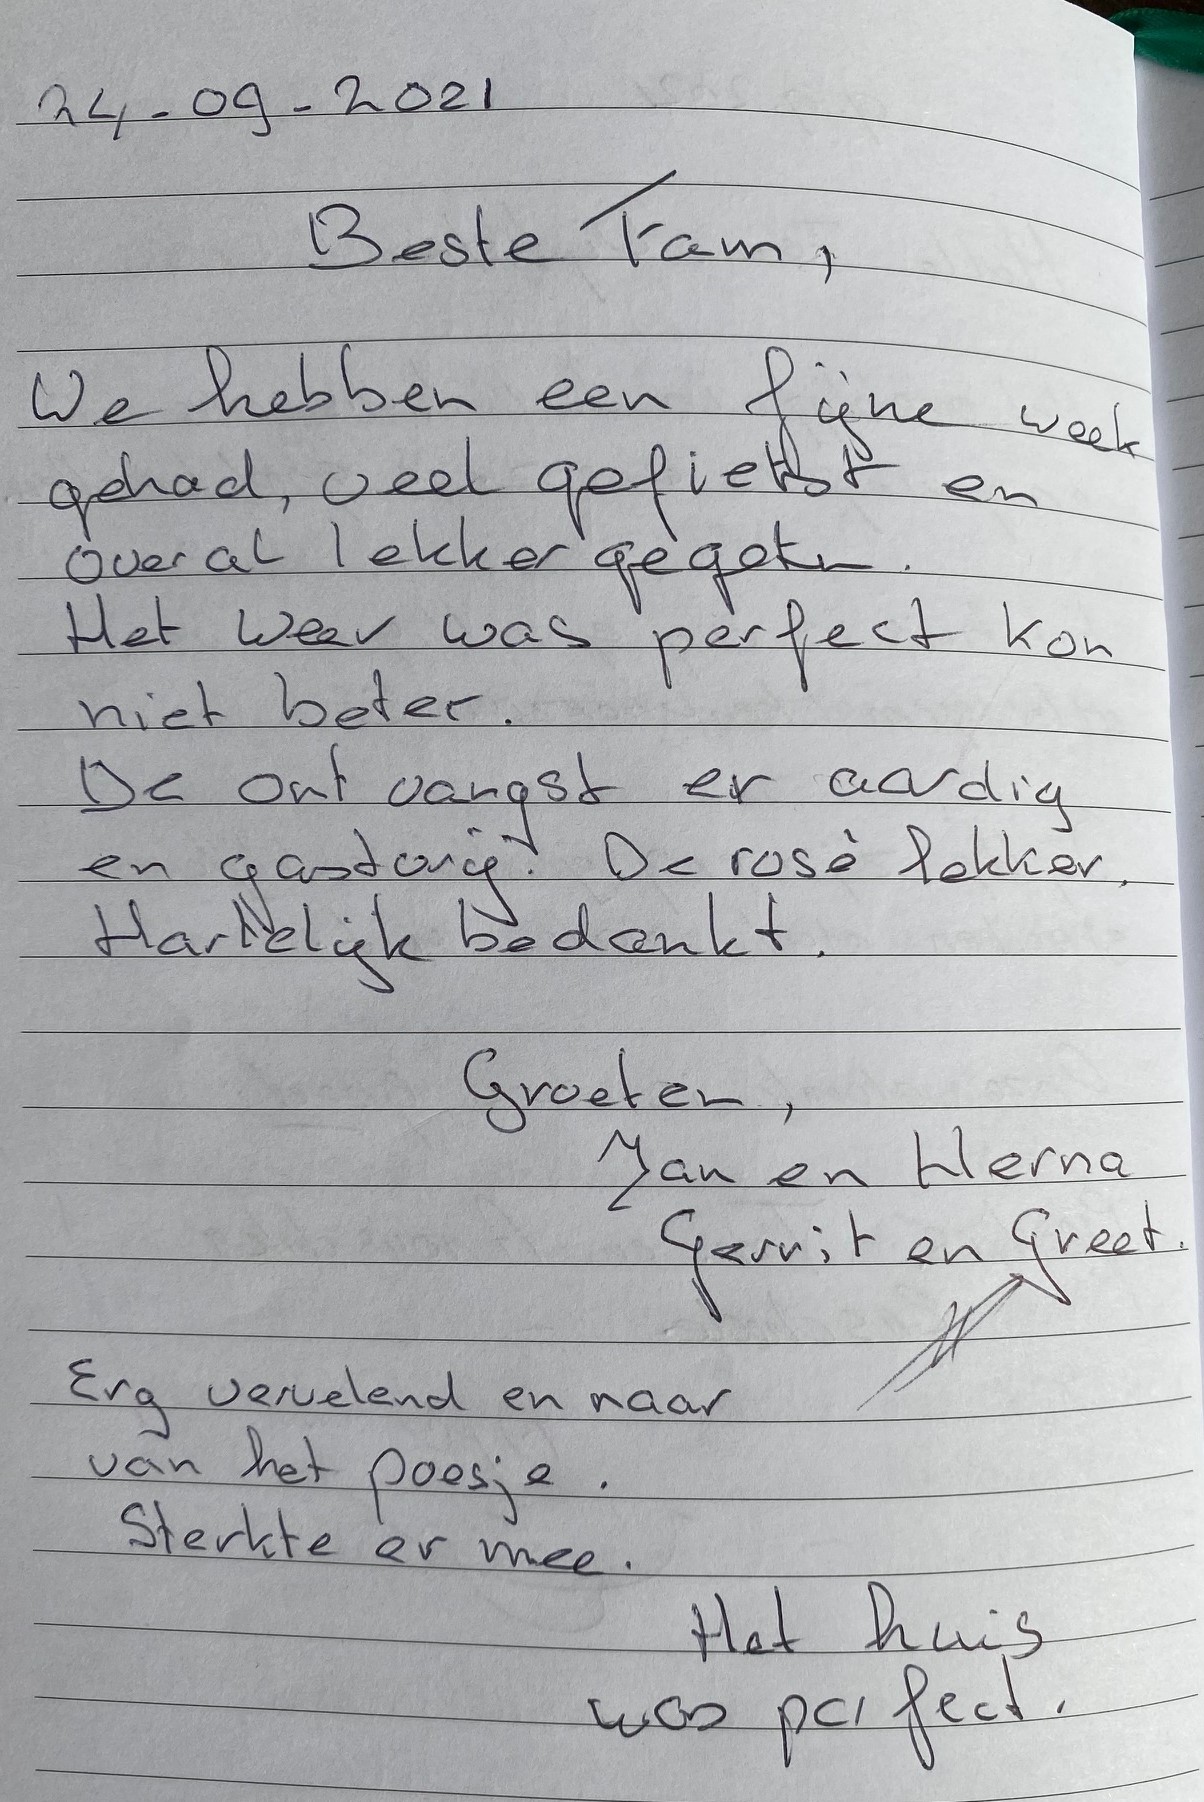 24-09-2021
Beste Fam,
We hebben een fijne week
gehad, veel gefietst en
overal lekker gegeten.
Het weer was perfect kon
niet beter.
De ontvangst er aardig
en gastvrij! De rosè lekker.
Hartelijk bedankt.
Groeten,
Jan en Herna
Gerrit en Greet.
Erg vervelend en naar
van het poesje.
Sterkte er mee.
Het huis
was perfect.